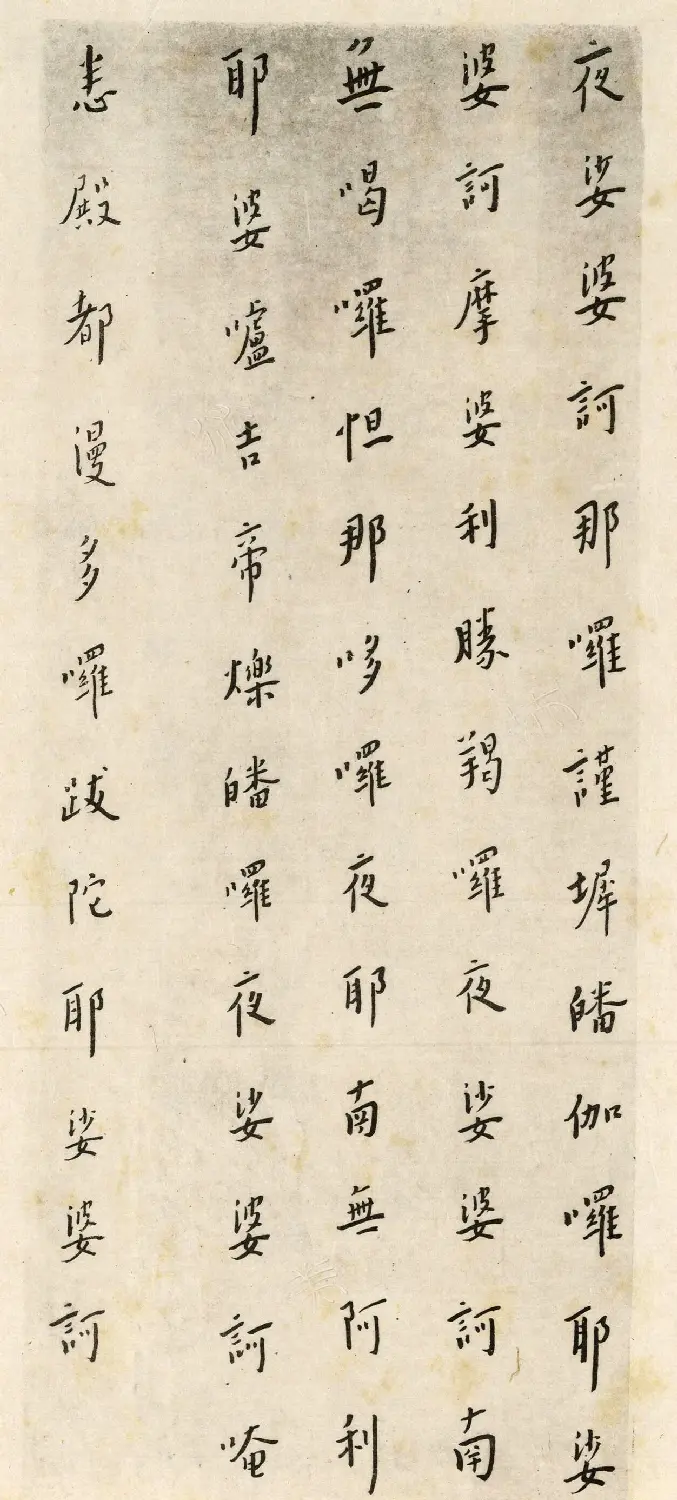 夜娑婆訶那囉謹墀皤伽囉耶娑
婆訶摩婆利勝羯囉夜娑婆訶南
無喝囉怛那哆囉夜耶南無阿利
耶婆嚧吉帝爍皤囉夜娑婆訶唵
悉殿都漫多囉跋陀耶娑婆訶